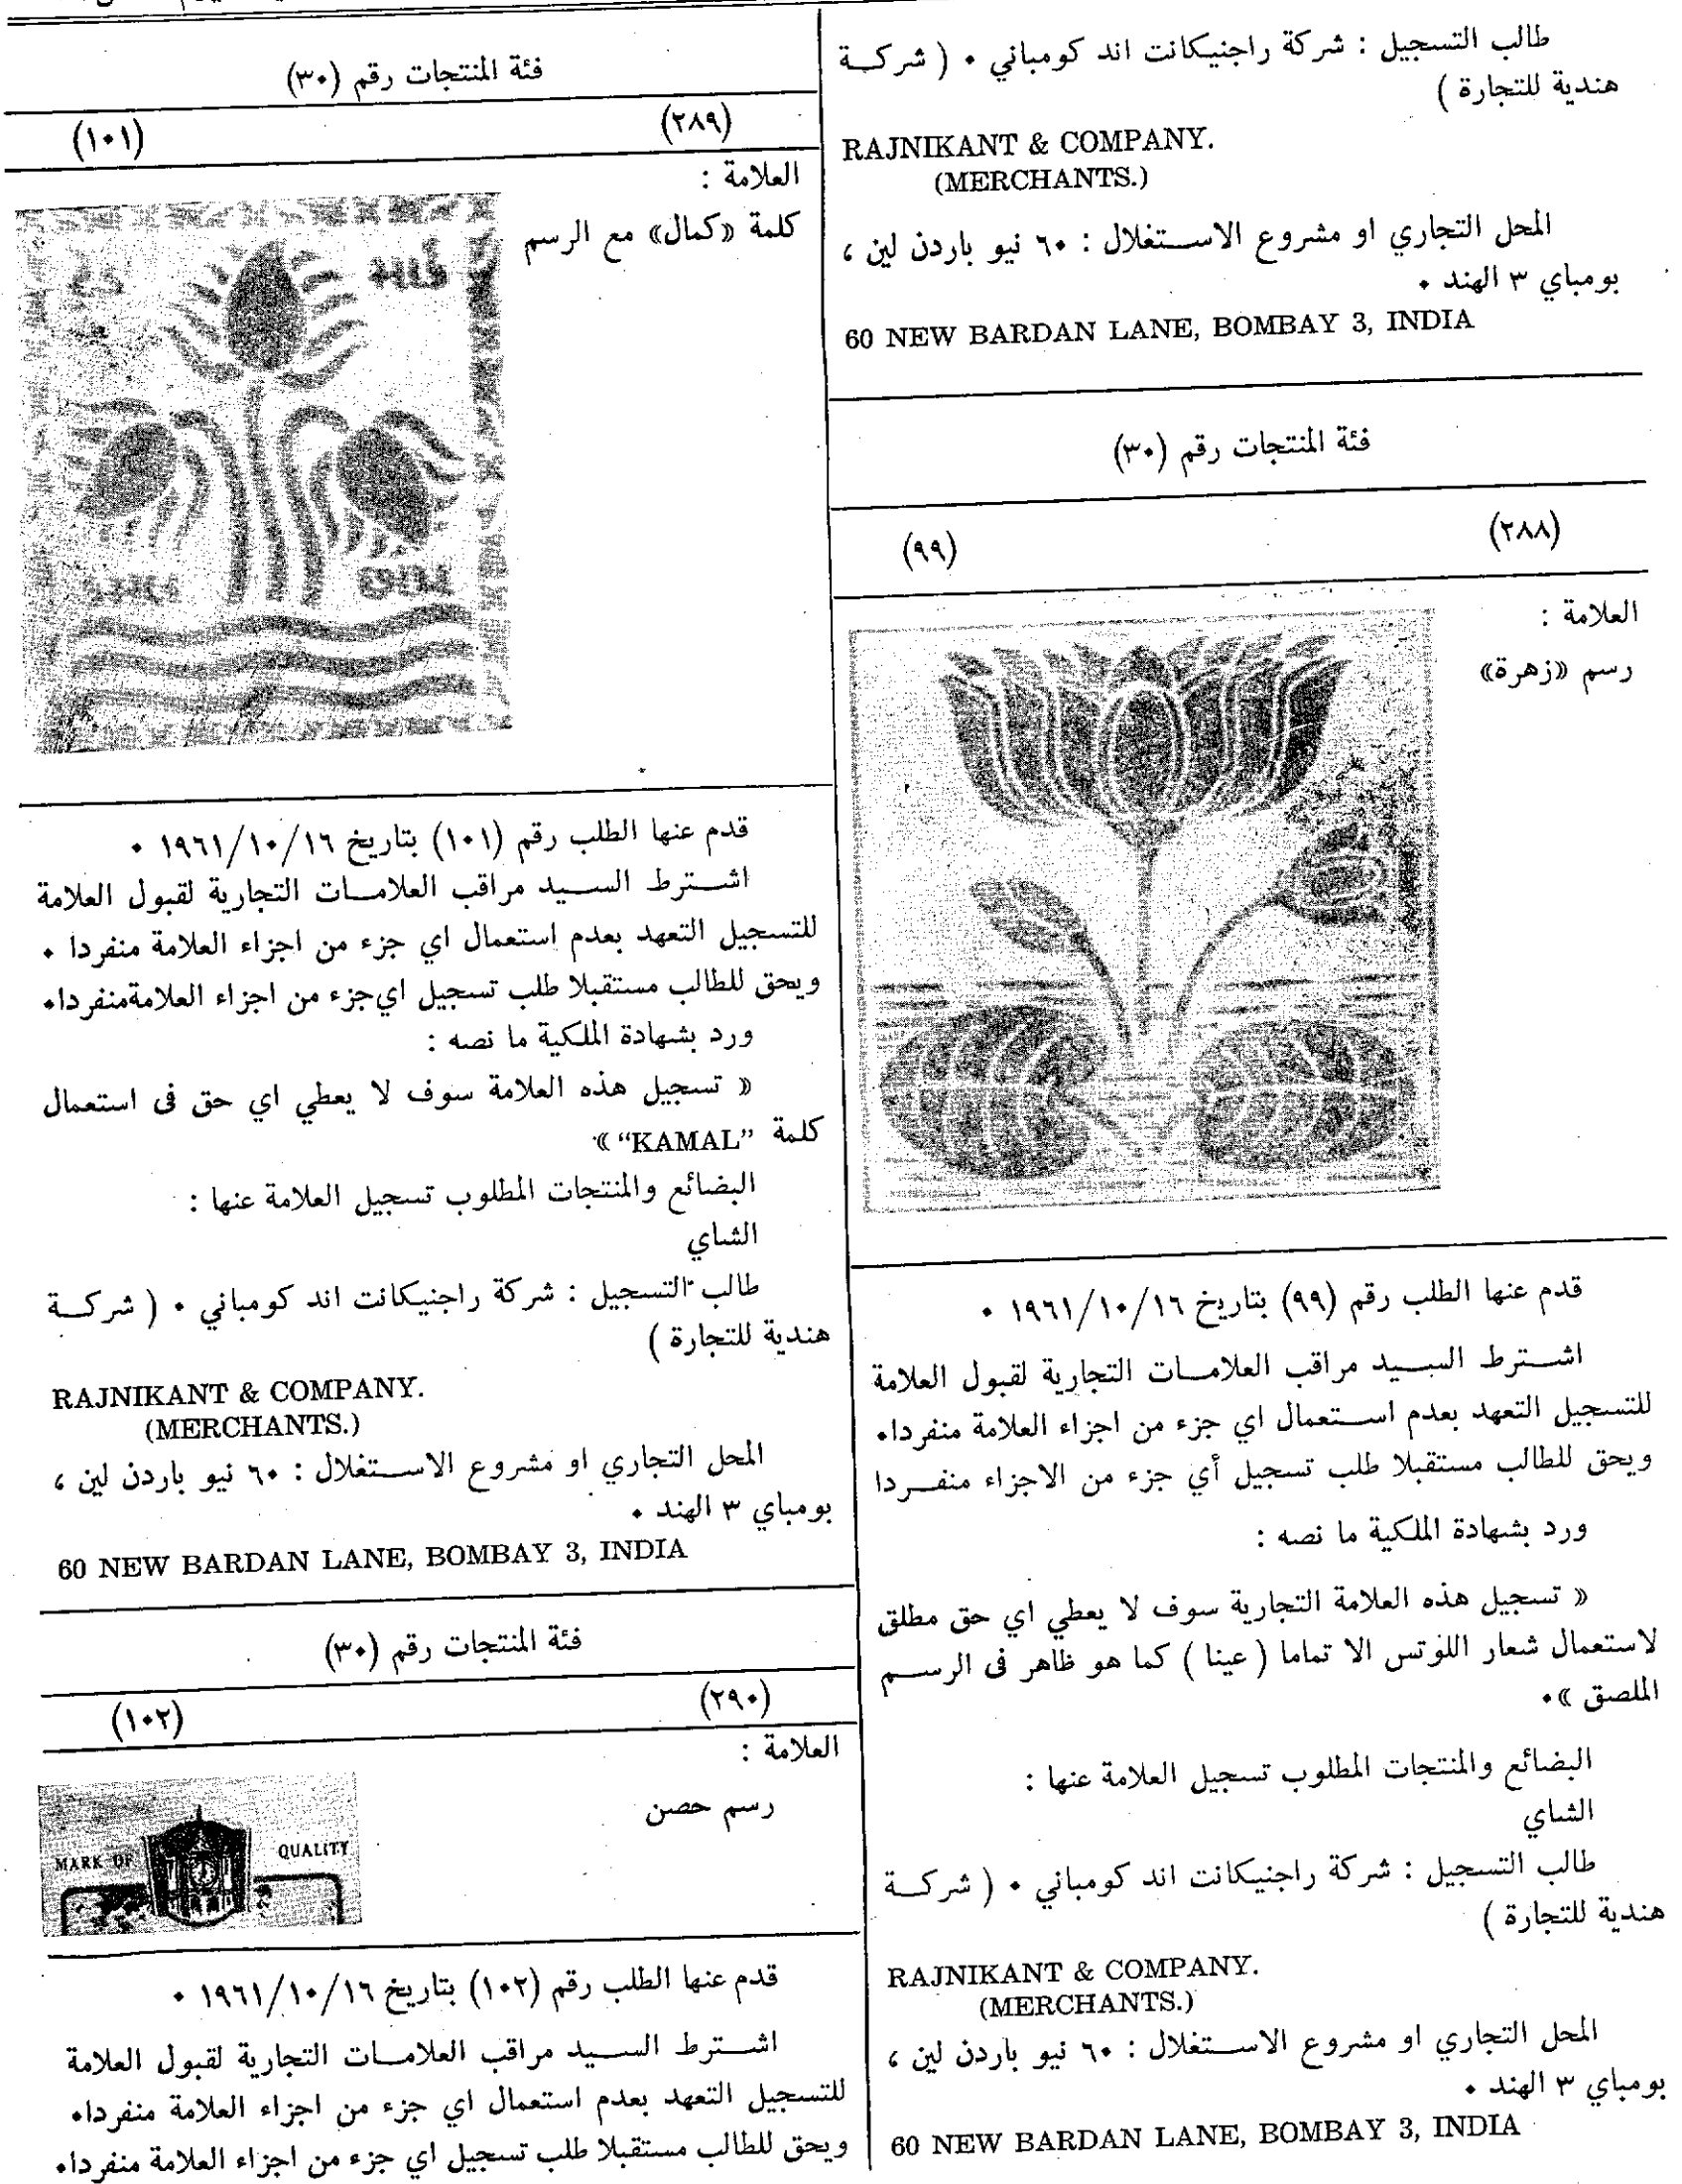 طالب التسجيل : شركة راجنيكانت اند كومباني ٠ ( شركـة
هندية للتجارة )
RAJNIKANT & COMPANY.
(MERCHANTS.)
المحل التجاري او مشروع الاستغلال : ٦٠ نيو باردن لين ،
بومباي ٣ الهند ٠
60 NEW BARDAN LANE, BOMBAY 3, INDIA
فئة المنتجات رقم (٣٠)
(٢٨٨) (٩٩)
العلامة :
رسم «زهرة»
قدم عنها الطلب رقم (٩٩) بتاريخ ١٩٦١/١٠/١٦ ٠
اشترط السيد مراقب العلامات التجارية لقبول العلامة
للتسجيل التعهد بعدم استعمال اي جزء من اجزاء العلامة منفردا٠
ويحق للطالب مستقبلا طلب تسجيل أي جزء من الاجزاء منفردا
ورد بشهادة الملكية ما نصه :
« تسجيل هذه العلامة التجارية سوف لا يعطي اي حق مطلق
لاستعمال شعار اللوتس الا تماما ( عينا ) كما هو ظاهر فى الرسم
الملصق »٠
البضائع والمنتجات المطلوب تسجيل العلامة عنها :
الشاي
طالب التسجيل : شركة راجنيكانت اند كومباني ٠ ( شركـة
هندية للتجارة )
RAJNIKANT & COMPANY.
(MERCHANTS.)
المحل التجاري او مشروع الاستغلال : ٦٠ نيو باردن لين ،
بومباي ٣ الهند ٠
60 NEW BARDAN LANE, BOMBAY 3, INDIA
فئة المنتجات رقم (٣٠)
(٢٨٩) (١٠١)
العلامة :
كلمة «كمال» مع الرسم
قدم عنها الطلب رقم (١٠١) بتاريخ ١٩٦١/١٠/١٦ ٠
اشترط السيد مراقب العلامات التجارية لقبول العلامة
للتسجيل التعهد بعدم استعمال اي جزء من اجزاء العلامة منفردا ٠
ويحق للطالب مستقبلا طلب تسجيل اي جزء من اجزاء العلامة منفردا٠
ورد بشهادة الملكية ما نصه :
« تسجيل هذه العلامة سوف لا يعطي اي حق فى استعمال
كلمة "KAMAL" »
البضائع والمنتجات المطلوب تسجيل العلامة عنها :
الشاي
طالب التسجيل : شركة راجنيكانت اند كومباني ٠ ( شركـة
هندية للتجارة )
RAJNIKANT & COMPANY.
(MERCHANTS.)
المحل التجاري او مشروع الاستغلال : ٦٠ نيو باردن لين ،
بومباي ٣ الهند ٠
60 NEW BARDAN LANE, BOMBAY 3, INDIA
فئة المنتجات رقم (٣٠)
(٢٩٠) (١٠٢)
العلامة :
رسم حصن
MARK OF QUALITY
قدم عنها الطلب رقم (١٠٢) بتاريخ ١٩٦١/١٠/١٦ ٠
اشترط السيد مراقب العلامات التجارية لقبول العلامة
للتسجيل التعهد بعدم استعمال اي جزء من اجزاء العلامة منفردا٠
ويحق للطالب مستقبلا طلب تسجيل اي جزء من اجزاء العلامة منفردا٠